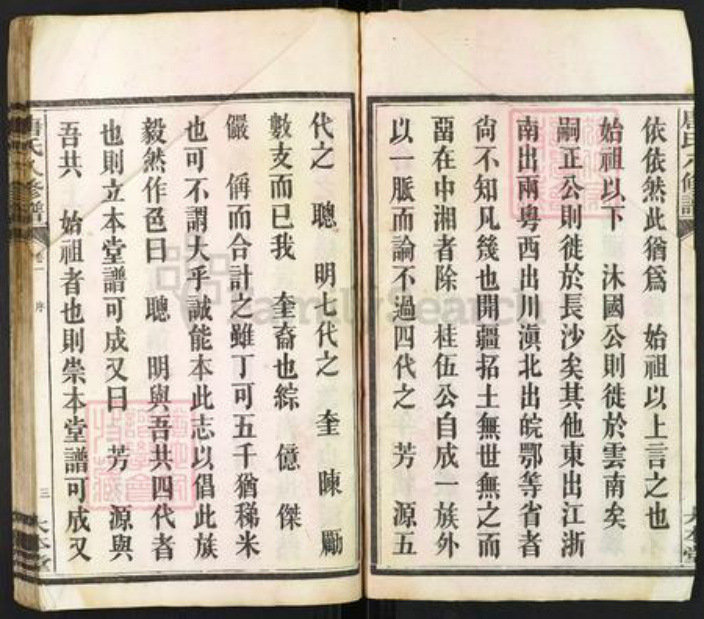 依依然此猶爲 始祖以上言之也
始祖以下 沐國公則徙於雲南矣
嗣正公則徙於長沙矣其他東出江浙
南出兩粵西出川滇北出皖鄂等省者
尙不知凡幾也開疆拓土無世無之而
當在中湘者除 桂伍公自成一族外
以一脈而論不過四代之 芳 源五
代之 聰 明七代之 奎 暕 勵
數支而已我 奎裔也綜 億 傑
儼 偁而合計之雖丁可五千猶稊米
也可不謂大乎誠能本此志以倡此族
毅然作色曰 聰 明與吾共四代者
也則立本堂譜可成又曰 芳 源與
吾共 始祖者也則崇本堂譜可成又
唐氏八修譜 卷一 序 三 大本堂
唐氏八修譜 大本堂
FamilySearch